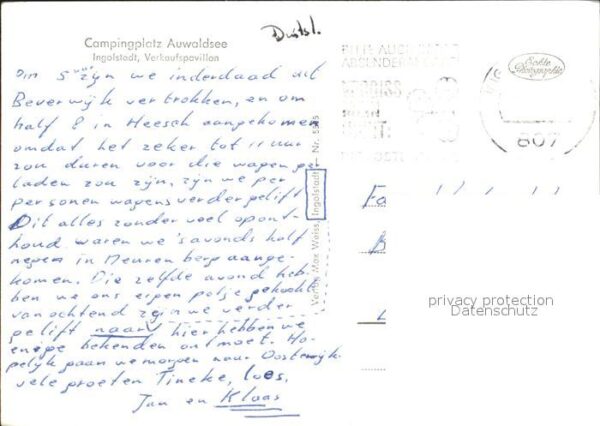 Duitsl.
Campingplatz Auwaldsee
Ingolstadt, Verkaufspavillon
Echte Photographie
BITTE AUCH
ABSENDERANGABE
807
Om 5 uur zijn we inderdaad uit
Beverwijk vertrokken, en om
half 8 in Heesch aangekomen
omdat het zeker tot 11 uur
zou duren voor die wagen ge
laden zou zijn, zijn we per
personenwagens verder gelift.
Dit alles zonder veel opont-
houd waren we 's avonds half
negen in Neurenberg aange-
komen. Die zelfde avond heb-
ben we ons eigen potje gekookt
vanochtend zijn we verder
gelift naar hier hebben we
enige bekenden ontmoet. Ho-
pelijk gaan we morgen naar Oostenrijk
vele groeten Tineke, Loes,
Jan en Klaas
Verlag Max Weiss, Ingolstadt — Nr. 5545
Fa
B
privacy protection
Datenschutz